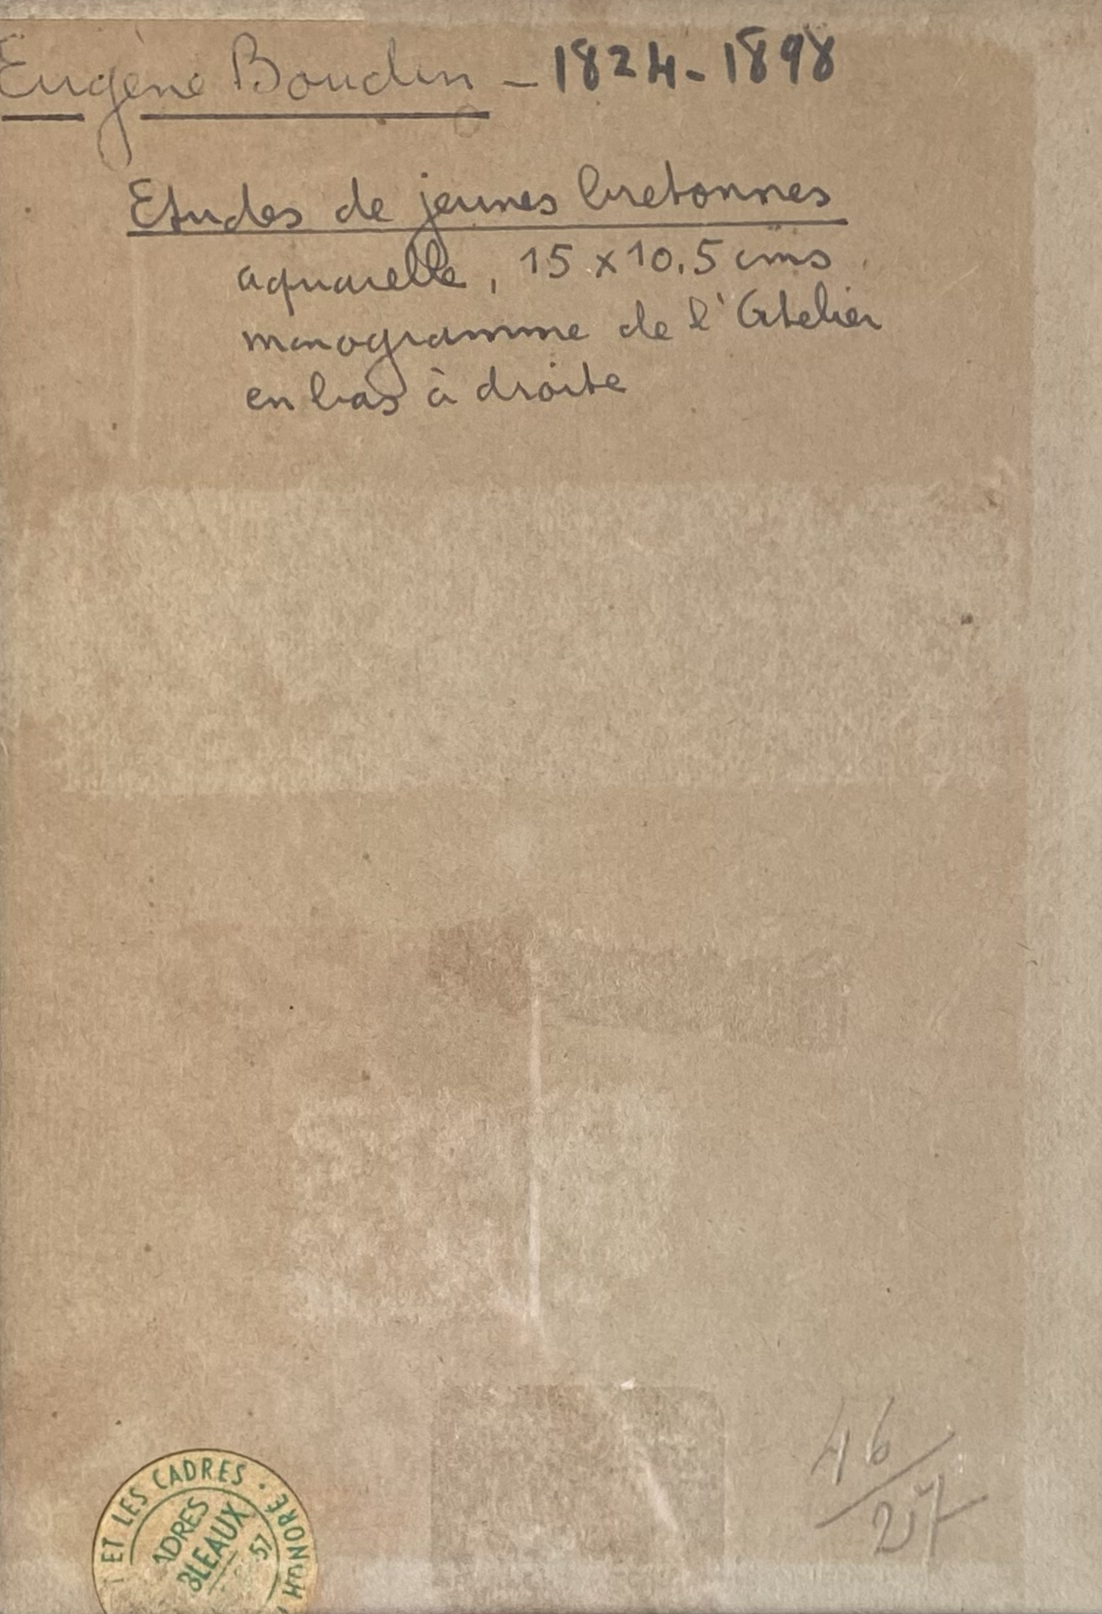 Eugène Boudin - 1824-1898
Etudes de jeunes bretonnes
aquarelle, 15 x 10,5 cms
monogramme de l'Atelier
en bas à droite
46
27
ET LES CADRES · HONORÉ
ADRES
BLEAUX
57